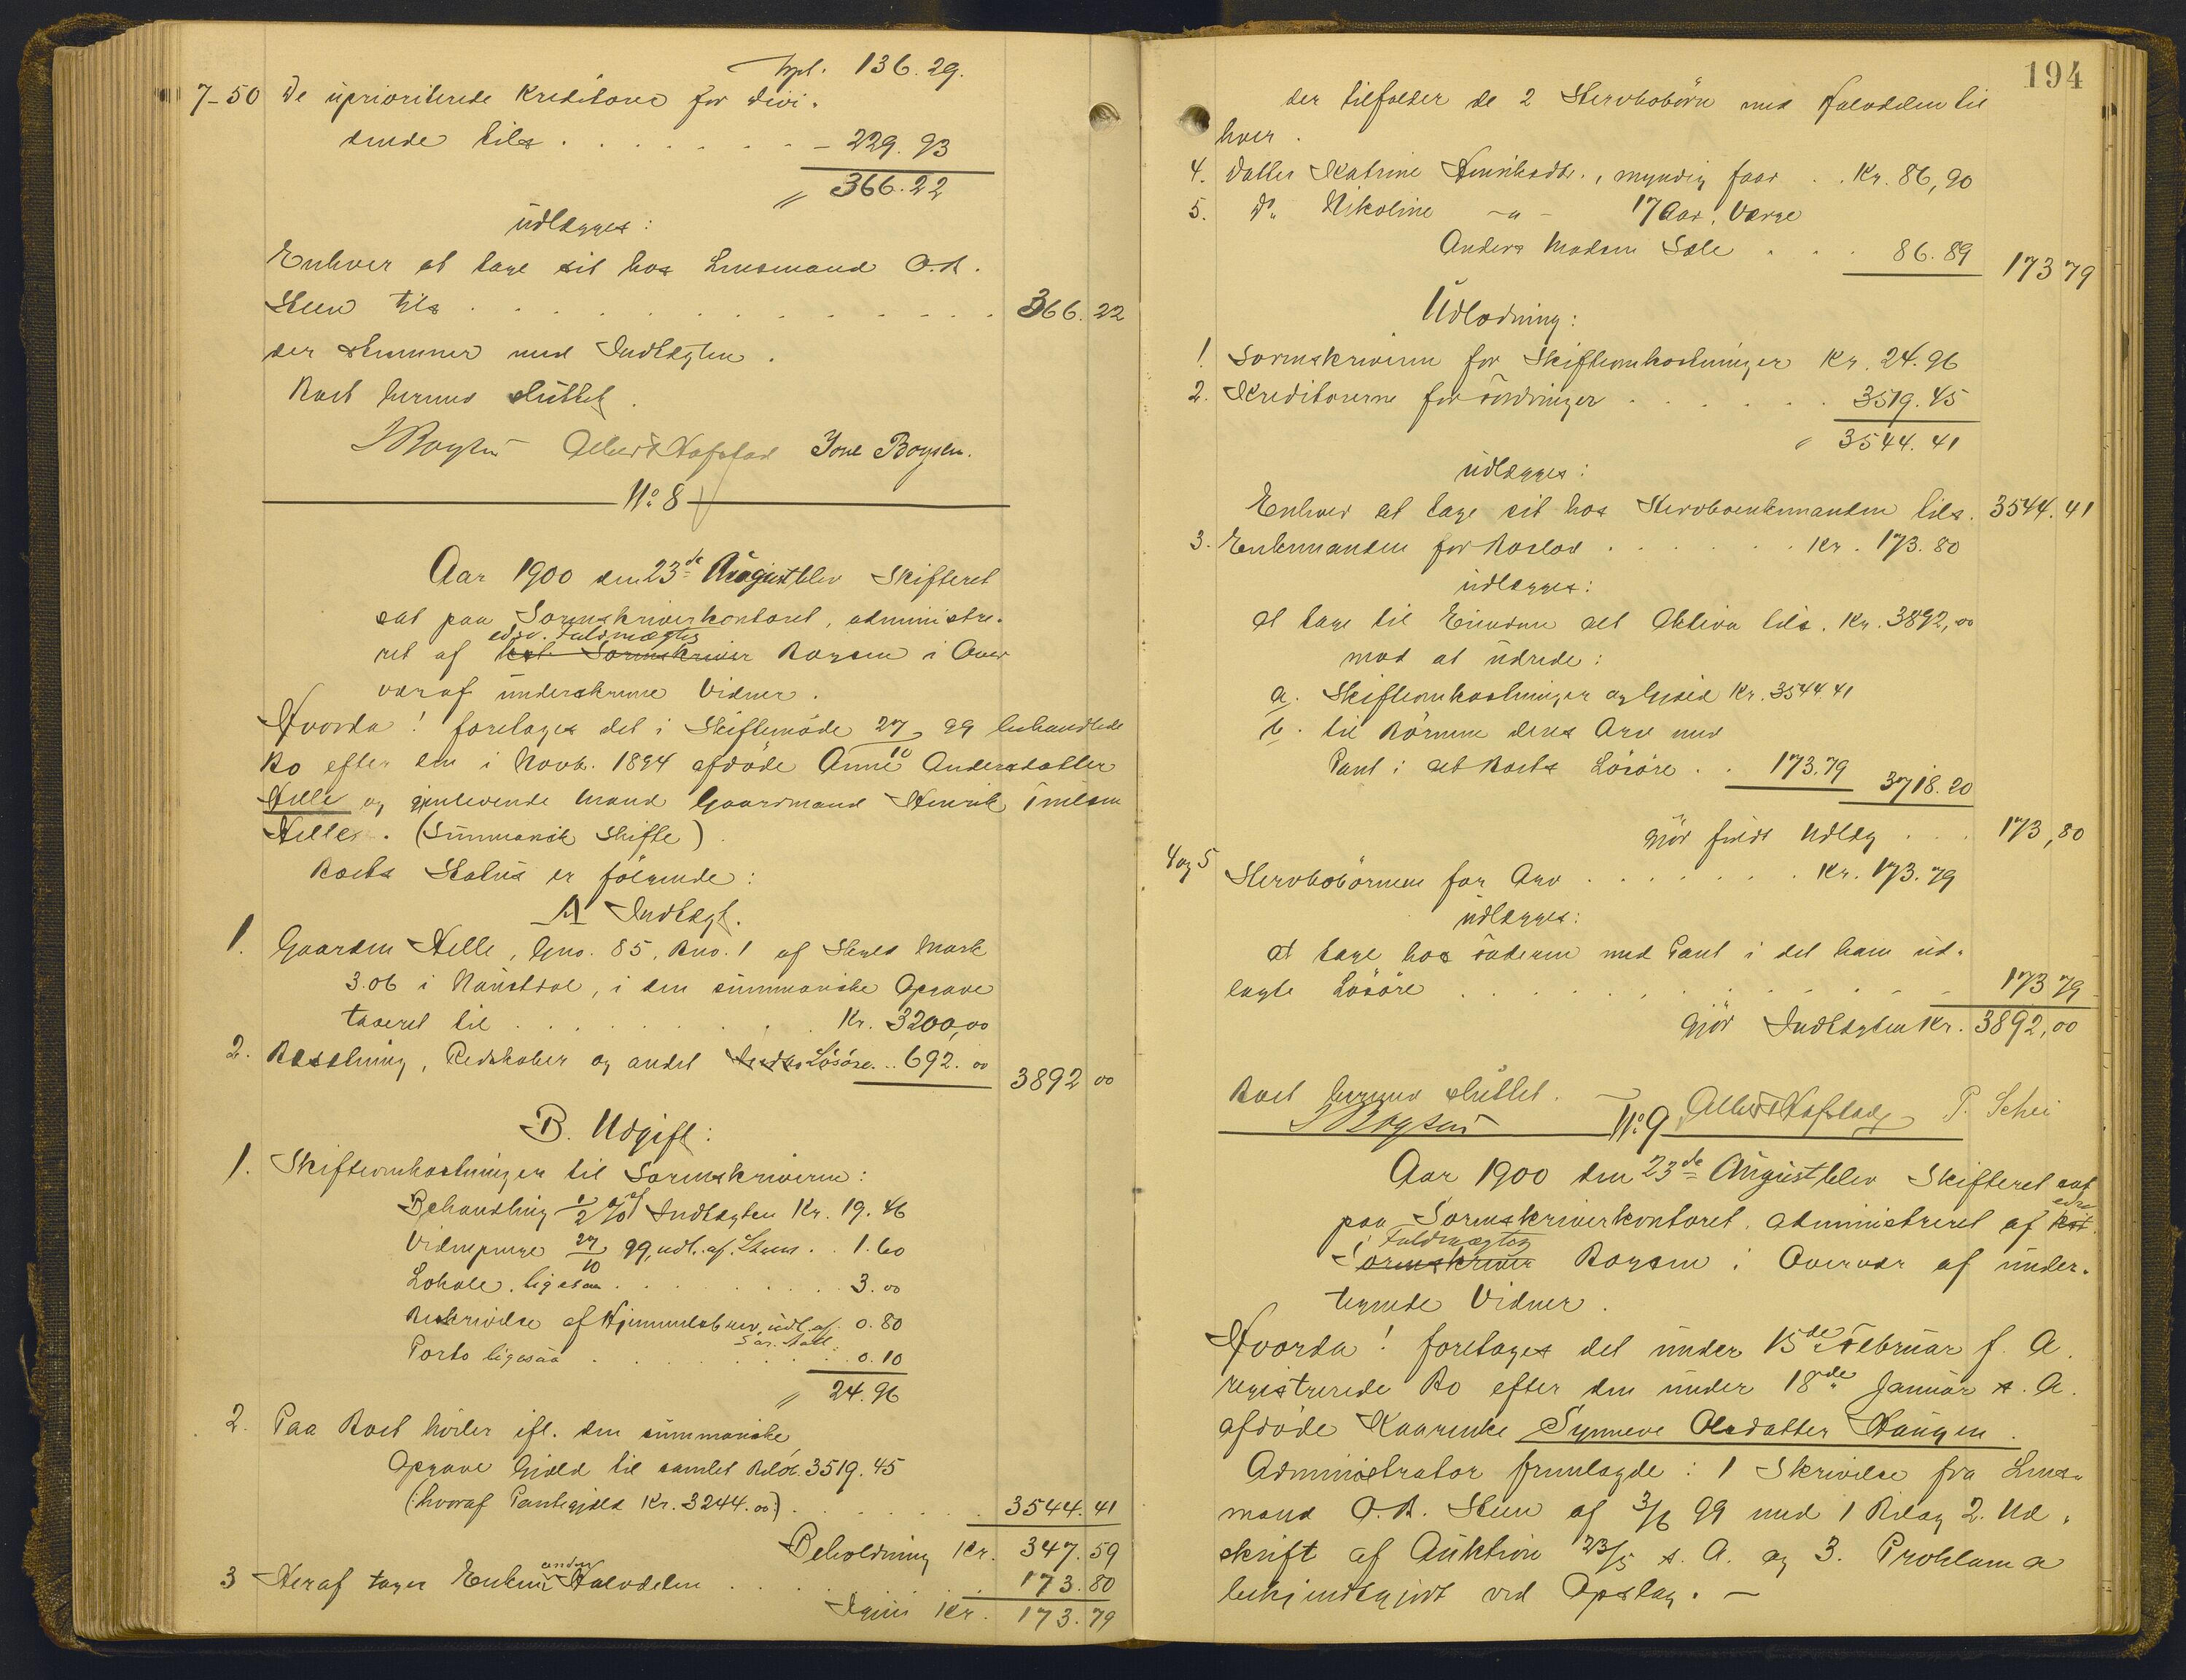 Trpt. 136.29.
7-50 De uprioriterede Kreditorer for Divi-
dende tils. . . . . . . - 229.93
" 366.22
udlægges:
Enhver at tage sit hos Lensmand O. A.
Steen tils . . . . . . . . . 366.22
der stemmer med Indtægten.
Boet hermed sluttet.
Boysen Albert Hafstad Jone Boysen.
No 8
Aar 1900 den 23de August blev Skifteret
sat paa Sorenskriverkontoret, administre-
edsv. Fuldmægtig
ret af kst. Sorenskriver Boysen i Over
vær af underskrevne Vidner.
Hvorda! foretoges det i Skiftemøde 27/10 99 behandlede
Bo efter den i Novb. 1894 afdöde Anne Andersdatter
Helle og gjenlevende Mand Gaardmand Henrik
Helle. (Summarisk Skifte)
Boets Status er følgende:
A Indtægt.
1. Gaarden Helle, Gno. 85, Bno. 1 af Skyld Mark
3.06 i Naustdal, i den summariske Opgave
taxeret til . . . . . . . Kr. 3200,00
2. Besetning, Redskaber og andet Indbo Lösöre . . 692.00 3892 00
B. Udgift:
1. Skifteomkostninger til Sorenskriveren:
Behandling 1/2 % af Indtægten Kr. 19.46
Vidnepenge 27/10 99, udl. af Steen . . 1.60
Lokale, ligesaa . . . . . . . 3.00
Beskrivelse af Hjemmelsbrev, udl. af 0.80
Sør. Aall
Porto ligesaa . . . . . . . 0.10
" 24.96
2. Paa Boet hviler ifl. den summariske
Opgave Gjæld til samlet Belöb 3519.45
(:hvoraf Pantegjæld Kr. 3244.00:) . . . . . . 3544.41
Beholdning Kr. 347.59
3 Heraf tager Enkemanden Halvdelen . . . . . . 173.80
Igjen Kr. 173.79
194
der tilfalder de 2 Stervbobörn med Halvdelen til
hver.
4. Datter Katrine Henriksdtr., myndig faar . . Kr. 86,90
5. Do. Nikoline -"- 17 Aar, Værge
Anders Madsen Sæle . . . 86.89 173 79
Udlodning:
1. Sorenskriveren for Skifteomkostninger Kr. 24.96
2. Kreditorerne for Fordringer . . . . . . 3519.45
" 3544.41
udlægges:
Enhver at tage sit hos Stervboenkemanden tils. 3544.41
3. Enkemanden for Boslod . . . . . . Kr. 173.80
udlægges:
at tage til Eiendom alt Aktiva tils. Kr. 3892,00
mod at udrede:
a. Skifteomkostninger og Gjæld Kr. 3544 41
b. til Börnene deres Arv med
Pant i alt Boets Lösöre . . 173.79 3718.20
gjör fuldt Udlæg . . . 173,80
4 og 5 Stervbobörnene for Arv . . . . . . . Kr. 173.79
udlægges:
at tage hos Faderen med Pant i det ham ud-
lagte Lösöre . . . . . . . . . 173 79
gjör Indtægten Kr. 3892,00
Boet hermed sluttet.
Boysen No 9 Albert Hafstad P. Schei
Aar 1900 den 23de August blev Skifteret sat
edsv.
paa Sorenskriverkontoret, administreret af kst.
Fuldmægtig
Sorenskriver Boysen i Overvær af under-
tegnede Vidner.
Hvorda! foretoges det under 15de Februar f. A.
registrerede Bo efter den under 18de Januar s. A.
afdöde Kaarenke Synneve Olsdatter Haugen.
Administrator fremlagde: 1 Skrivelse fra Lens-
mand O. A. Steen af 3/6 99 med 1 Bilag 2. Ud-
skrift af Auktion 23/5 s. A. og 3. Proklama
bekjendtgjort ved Opslag. —